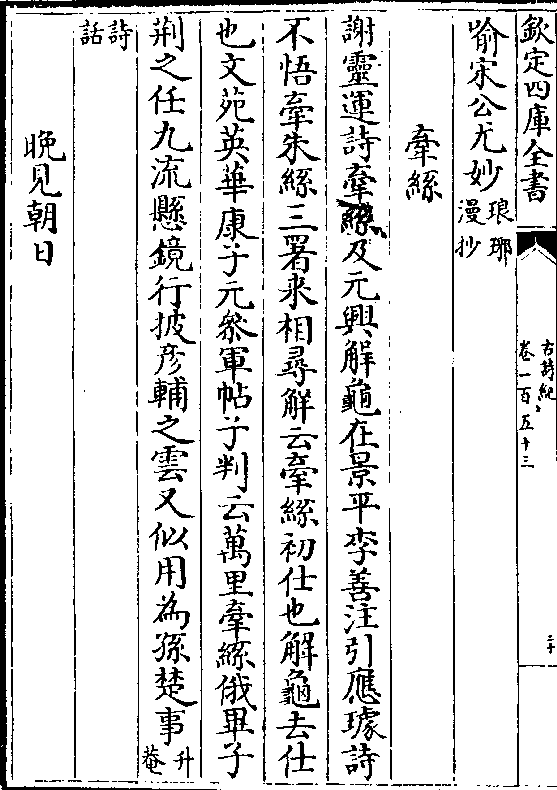 欽定四庫全書
古詩紀
卷一百五十三
三十
喻宋公尤妙琅琊漫抄
牽絲
謝靈運詩牽絲及元興解龜在景平李善注引應璩詩
不悟牽朱絲三署来相尋解云牽絲初仕也解龜去仕
也文苑英華康子元叅軍帖子判云萬里牽絲俄畢子
荆之任九流懸鏡行披彦輔之雲又似用為孫楚事升菴
詩話
晚見朝日